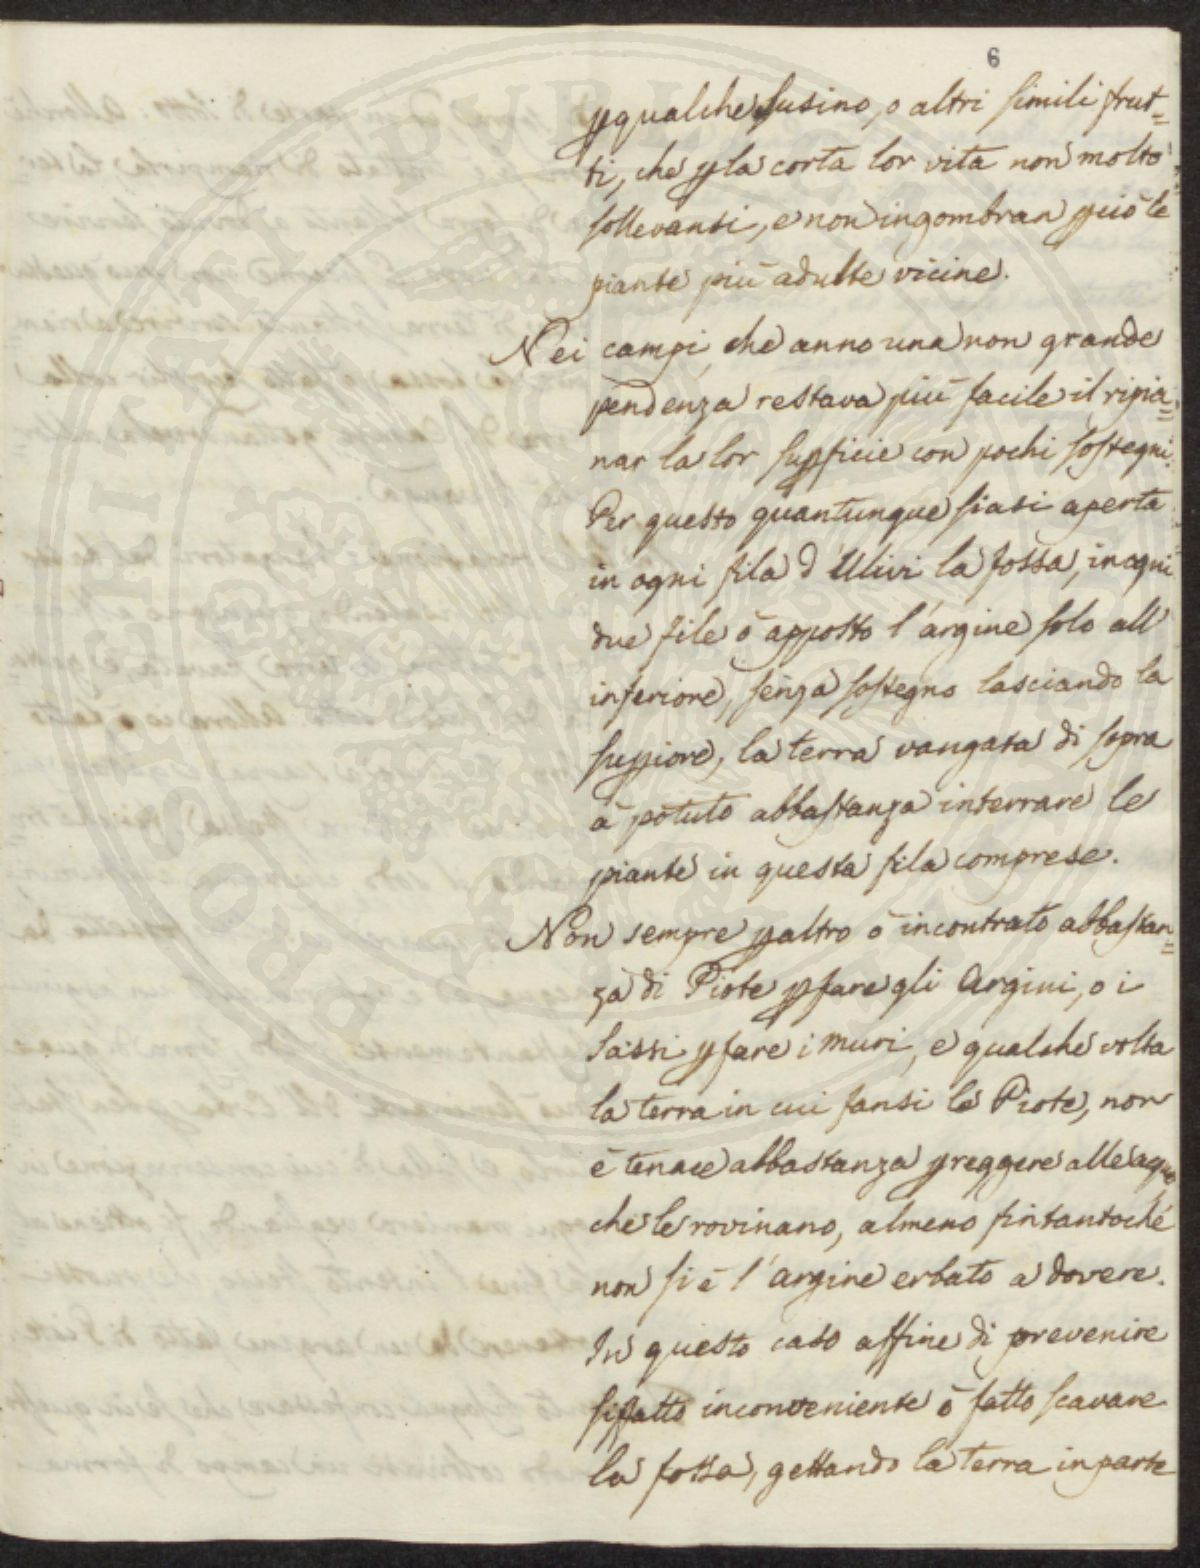 6
p qualche susino, o altri simili frut=
ti, che p la corta lor vita non molto
sollevansi, e non ingombran pciò le
piante più adulte vicine.
Nei campi, che anno una non grande
pendenza restava più facile il ripia=
nar la lor supficie con pochi sostegni.
Per questo quantunque siasi aperta
in ogni fila d'Ulivi la fossa, in ogni
due file ò apposto l'argine solo all'
inferiore, senza sostegno lasciando la
suppiore, la terra vangata di sopra
à potuto abbastanza interrare le
piante in questa fila comprese.
Non sempre p altro ò incontrato abbastan=
za di Piote p fare gli Argini, o i
Sassi p fare i muri, e qualche volta
la terra in cui fansi le Piote, non
è tenace abbastanza p reggere alle aque
che le rovinano, almeno fintantoché
non si è l'argine erbato a dovere.
In questo caso affine di prevenire
sifatto inconveniente ò fatto scavare
la fossa, gettando la terra in parte
PROSPERITATI PVBLICAE